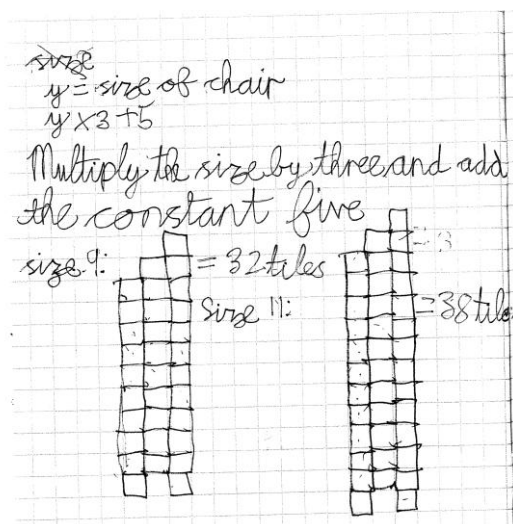 size
y = size of chair
y x 3 + 5
Multiply the size by three and add
the constant five
size 9: = 32 tiles
= 3
Size 11: = 38 tile